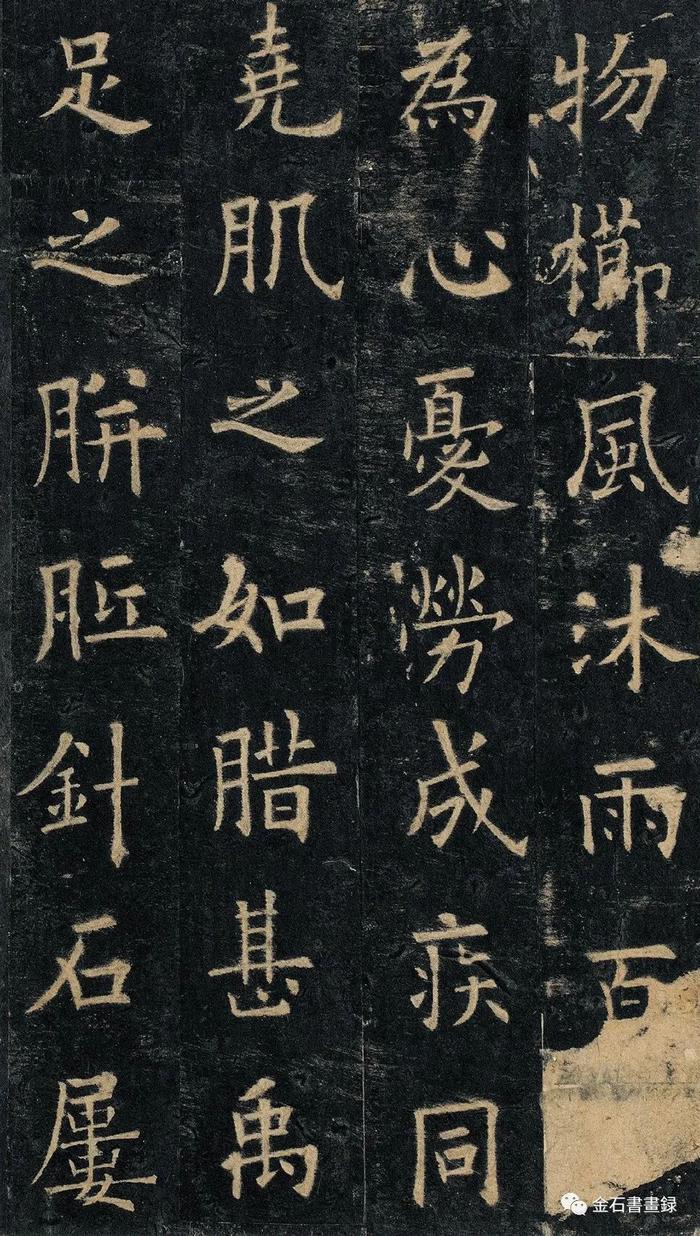 物櫛風沐雨百
為心憂勞成疾同
堯肌之如腊甚禹
足之胼胝針石屢
金石書畫録